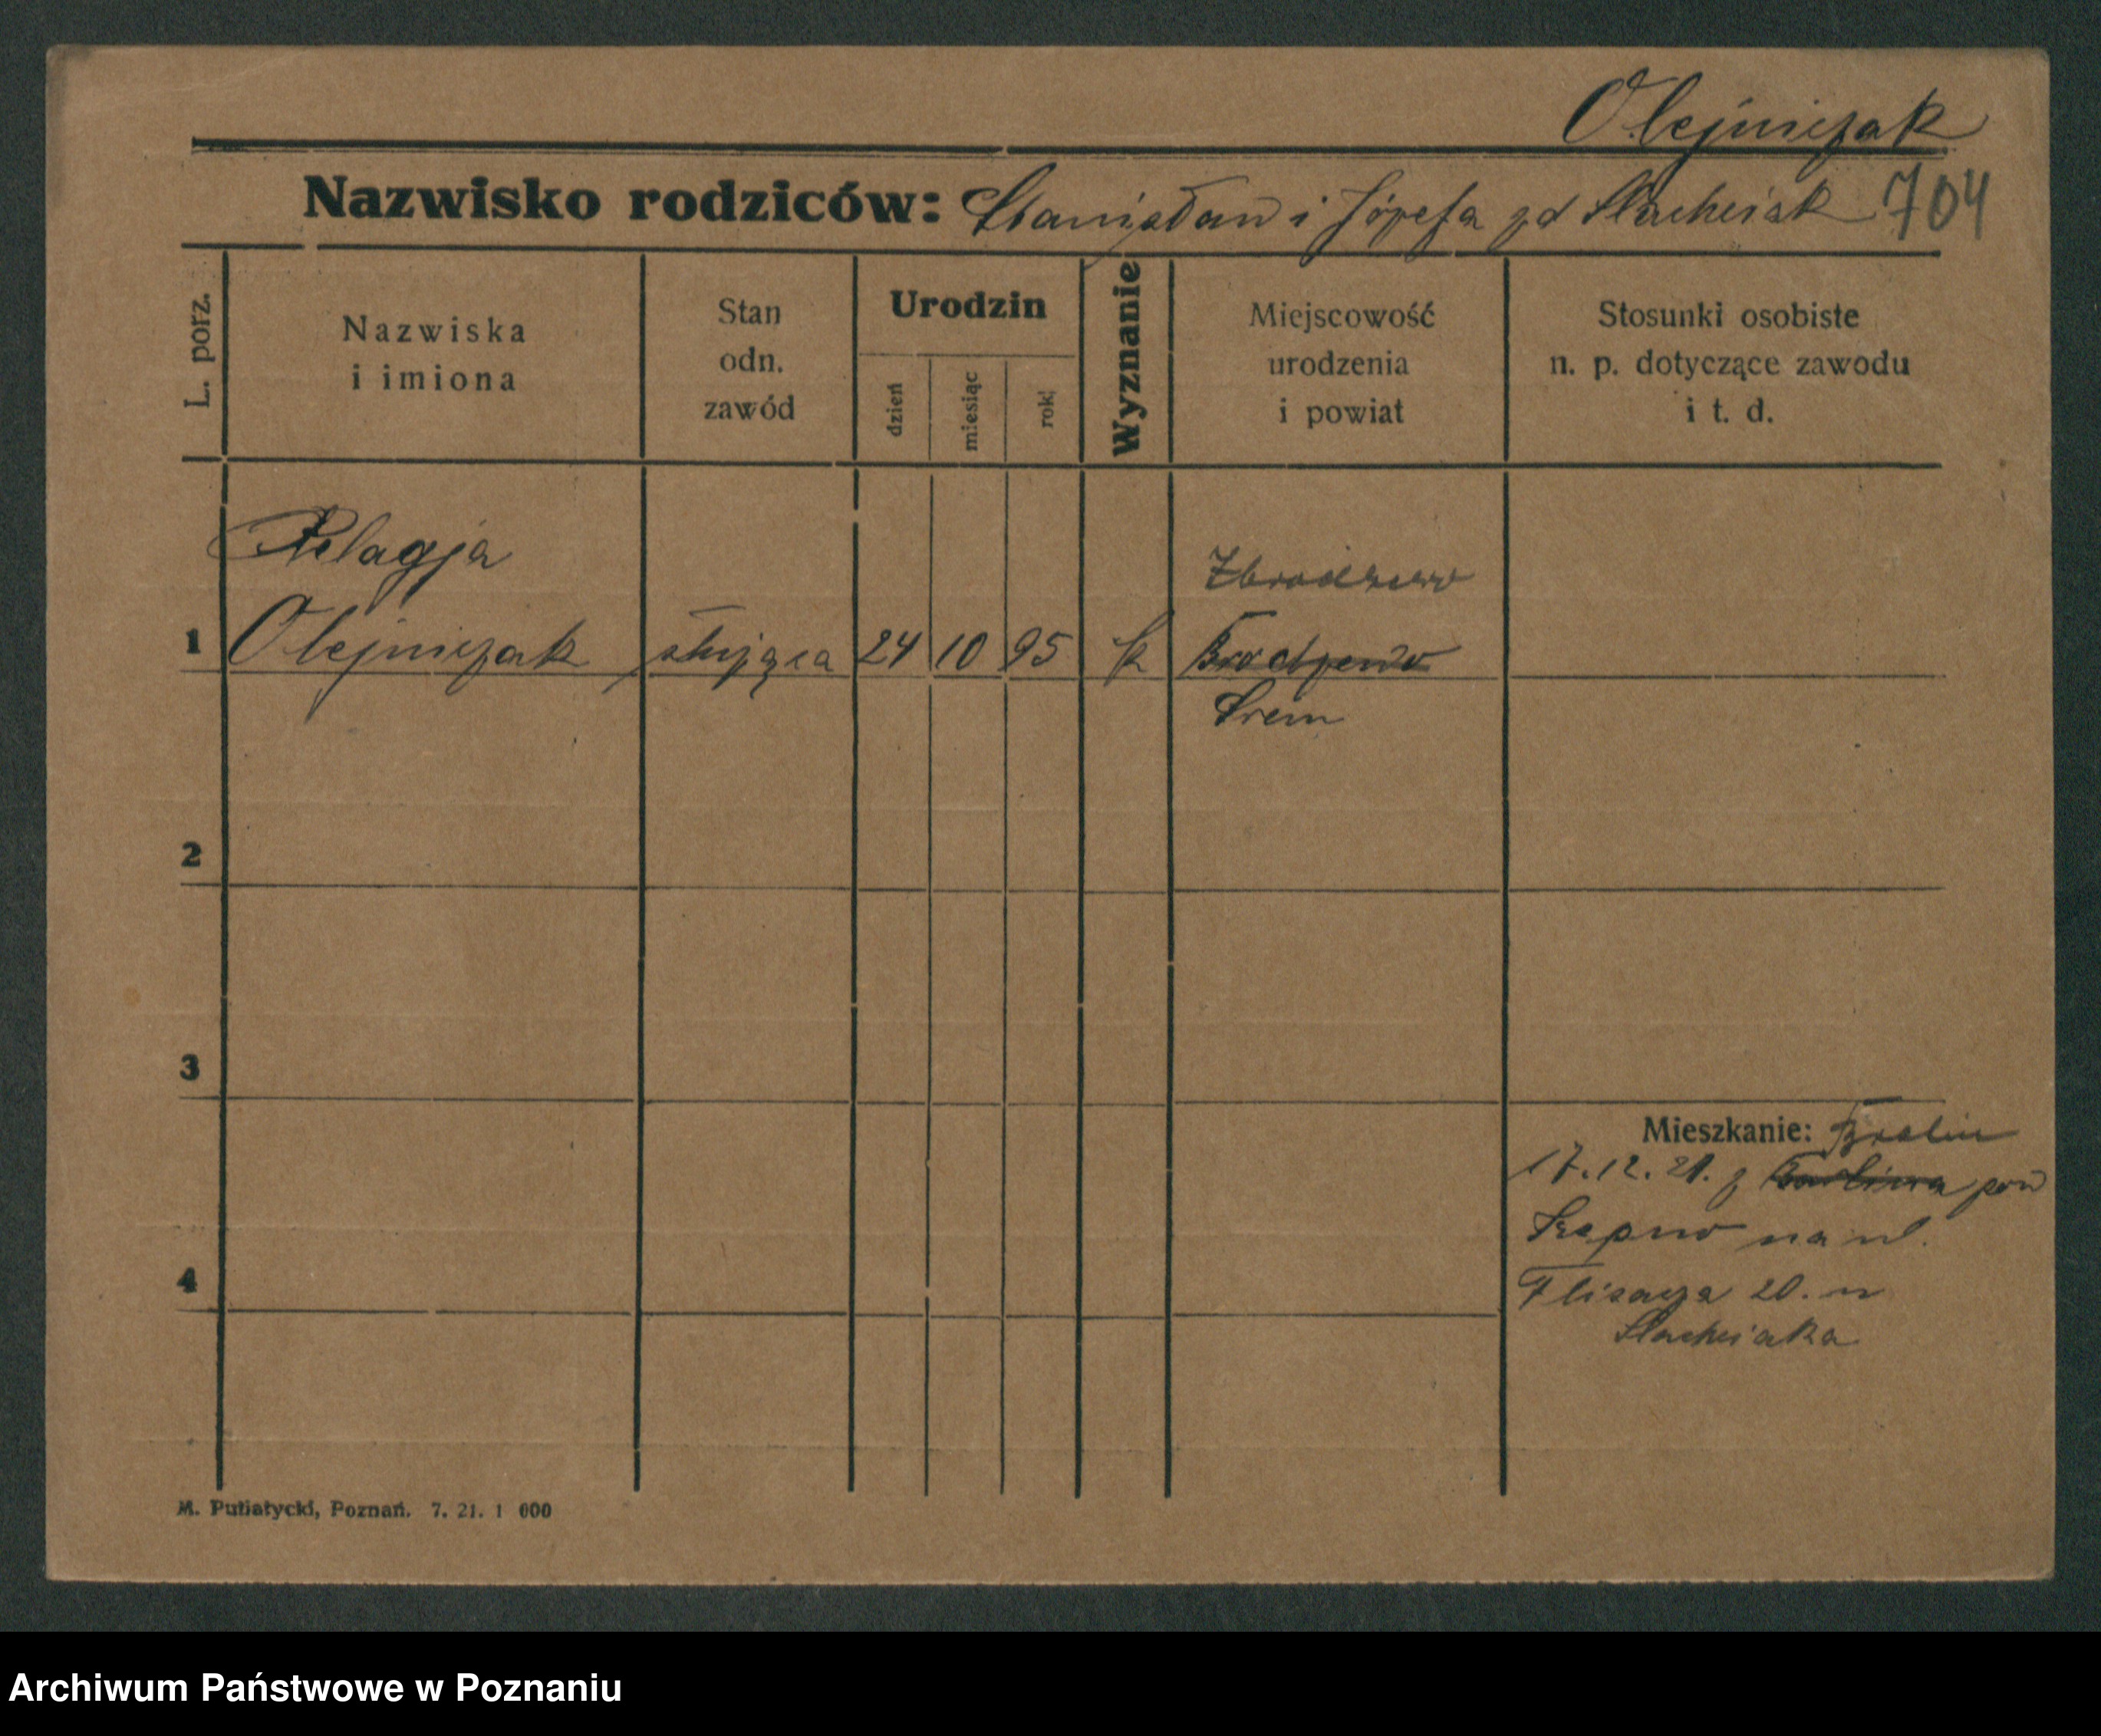 Olejniczak
Nazwisko rodziców: Stanisław i Józefa zd Stachciak 704
L. porz.
Nazwiska
i imiona
Stan
odn.
zawód
Urodzin
dzień
miesiąc
rok
Wyznanie
Miejscowość
urodzenia
i powiat
Stosunki osobiste
n. p. dotyczące zawodu
i t. d.
Pelagja
Zbrodzewo
1 Olejniczak służąca 24 10 95 k Brodzewo
Śrem
2
3
Mieszkanie: Bralin
17.12.21. z pow
Kępno na ul.
Flisacza 20. u
Stachciaka
4
M. Putiatycki, Poznań. 7. 21. 1 000
Archiwum Państwowe w Poznaniu